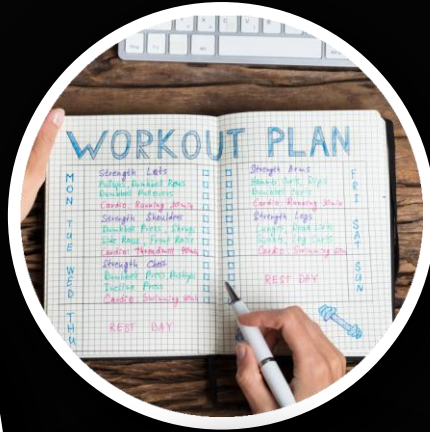 WORKOUT PLAN
MON
Strength Lats
Pullups, Dumbbell Rows
Dumbbell Pullovers
Cardio: Running
TUE
Strength Shoulders
Dumbbell Press, Shrugs
Side Rows, Front Rows
Cardio: Threadmill
WED
Strength Chest
Dumbbell Press, Pushups
Incline Press
Cardio: Swimming
THU
REST DAY
FRI
Strength Arms
Cardio: Running
SAT
Strength Legs
Lunges, Dead Lifts
Squats, Leg Curls
Cardio: Swimming
SUN
REST DAY